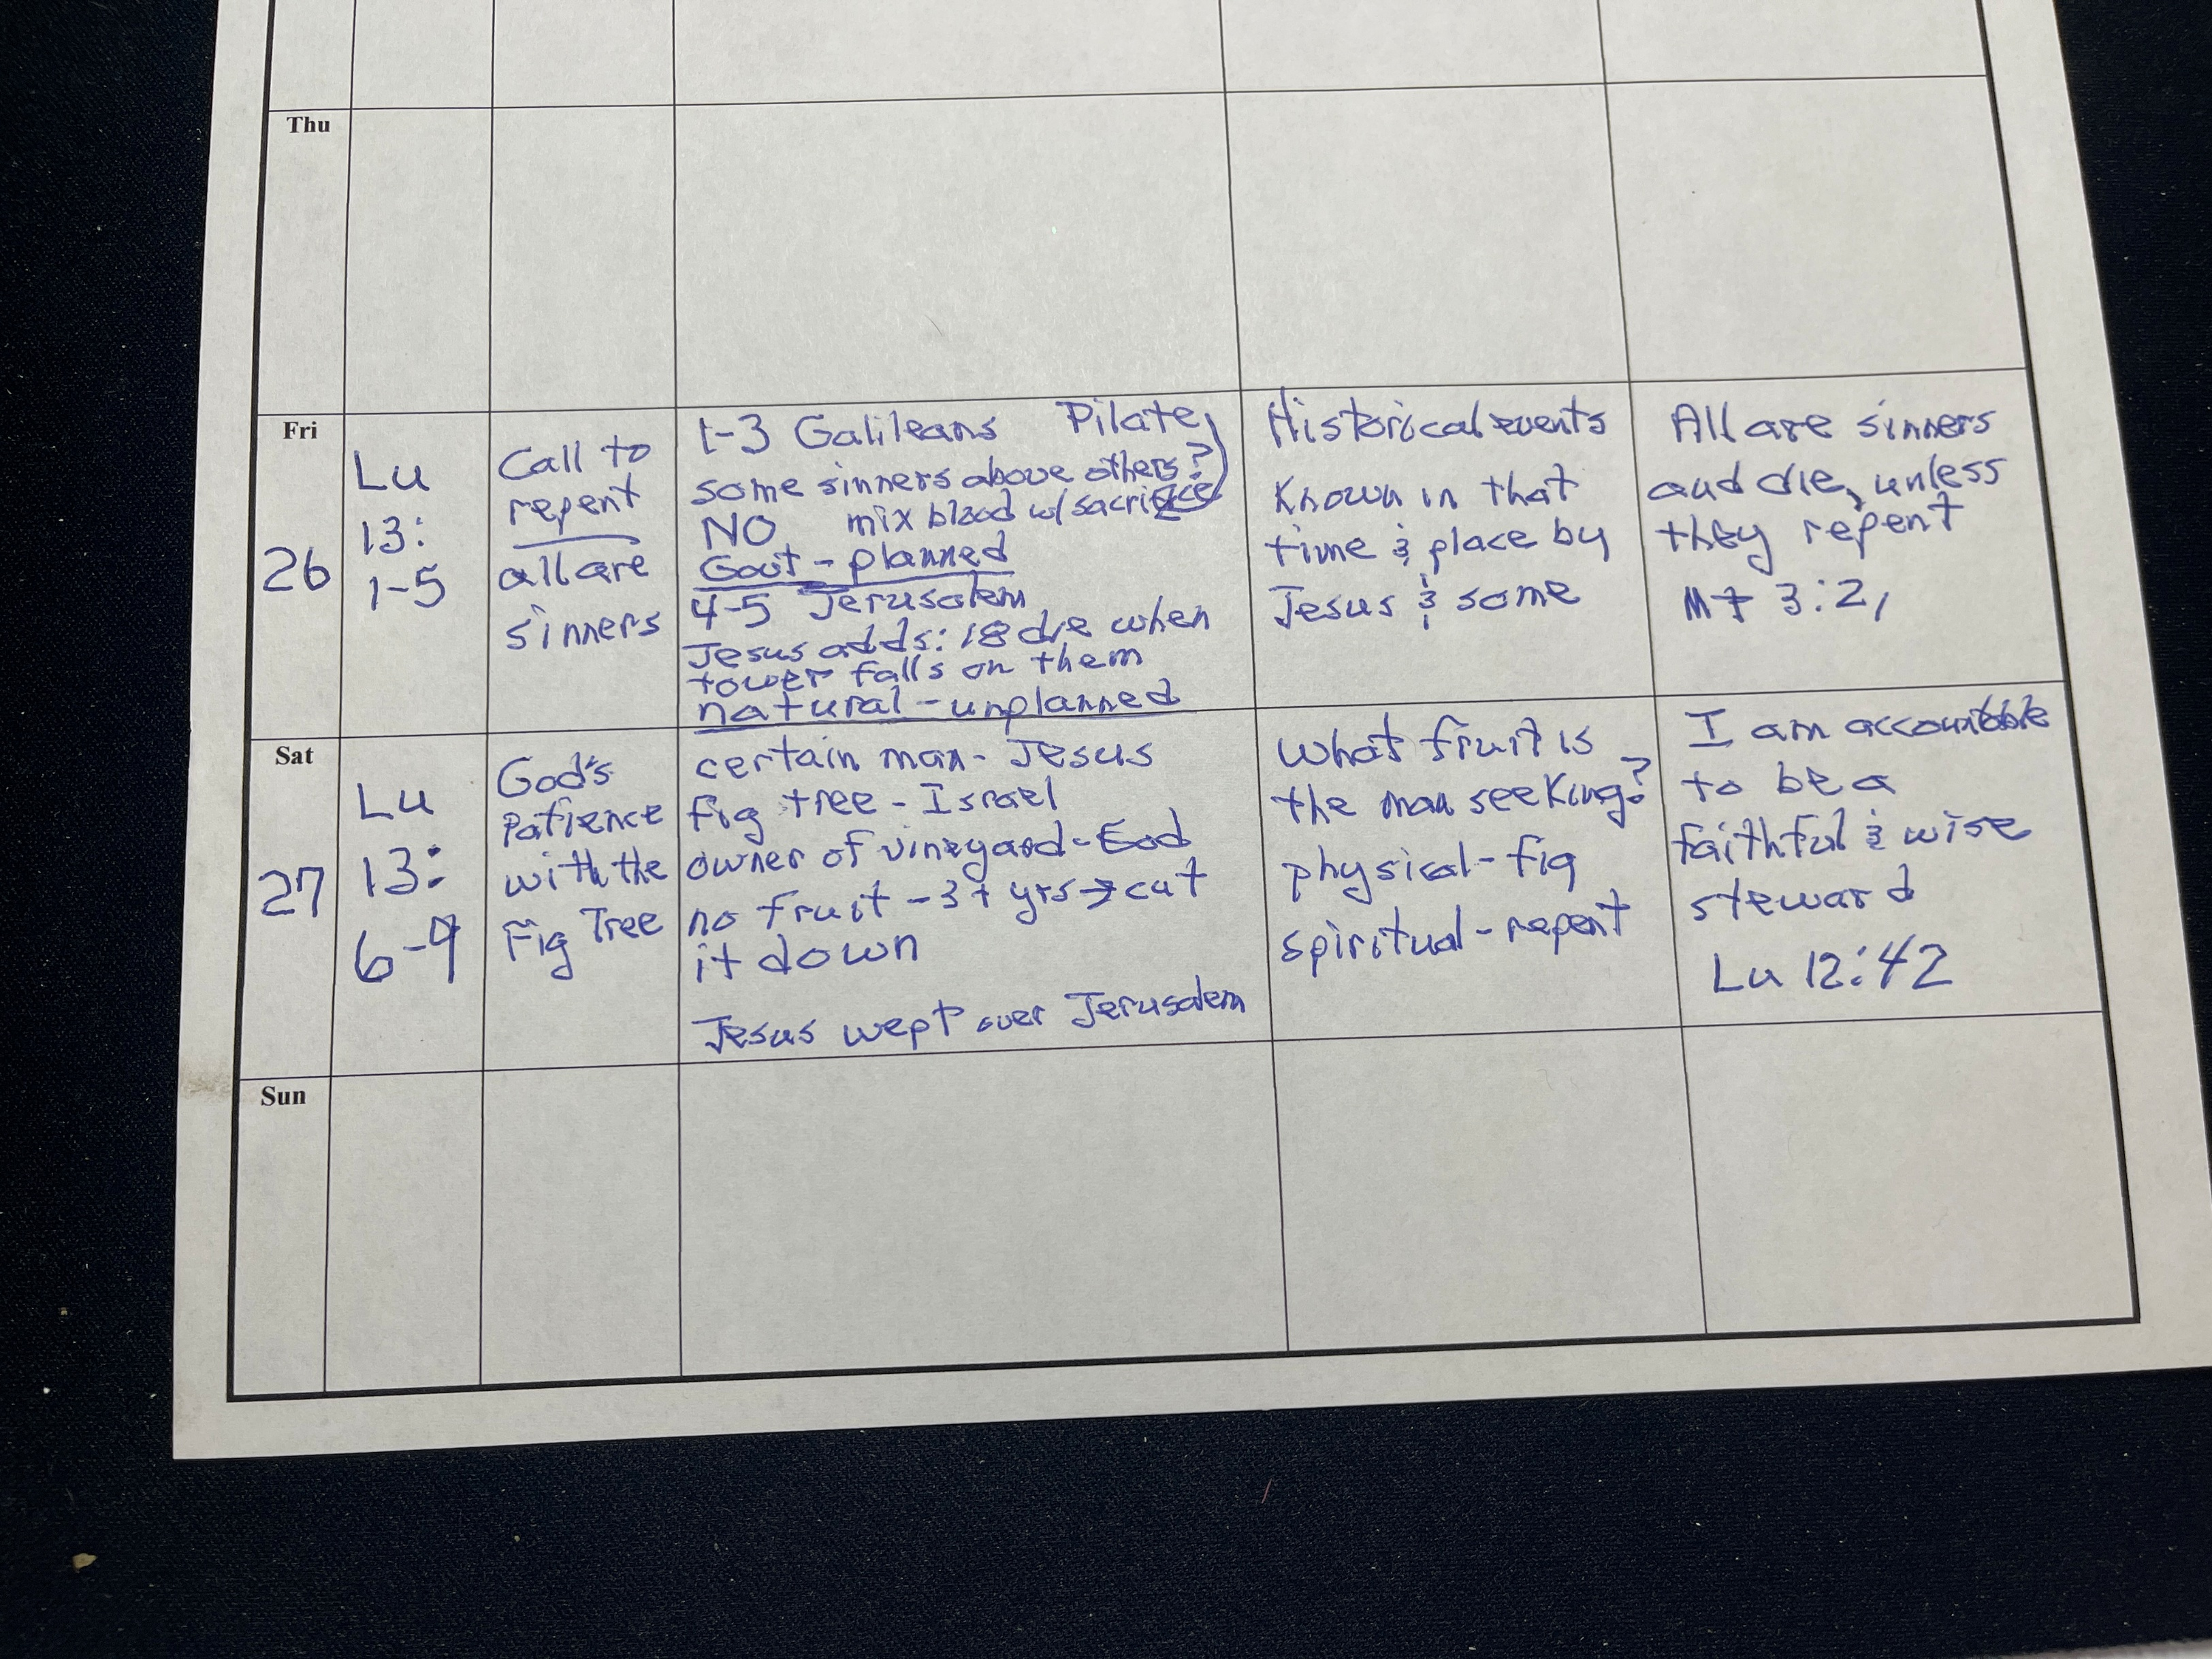 Thu
Fri
26
Lu
13:
1-5
Call to
repent
all are
sinners
1-3 Galileans Pilate
some sinners above others?
NO mix blood w/ sacrifice
Govt - planned
4-5 Jerusalem
Jesus adds: 18 die when
tower falls on them
natural - unplanned
Historical events
Known in that
time & place by
Jesus & some
All are sinners
and die, unless
they repent
Mt 3:2,
Sat
27
Lu
13:
6-9
God's
Patience
with the
Fig Tree
certain man - Jesus
fig tree - Israel
owner of vineyard - God
no fruit - 3+ yrs → cut
it down
Jesus wept over Jerusalem
What fruit is
the man seeking?
physical - fig
spiritual - repent
I am accountable
to be a
faithful & wise
steward
Lu 12:42
Sun